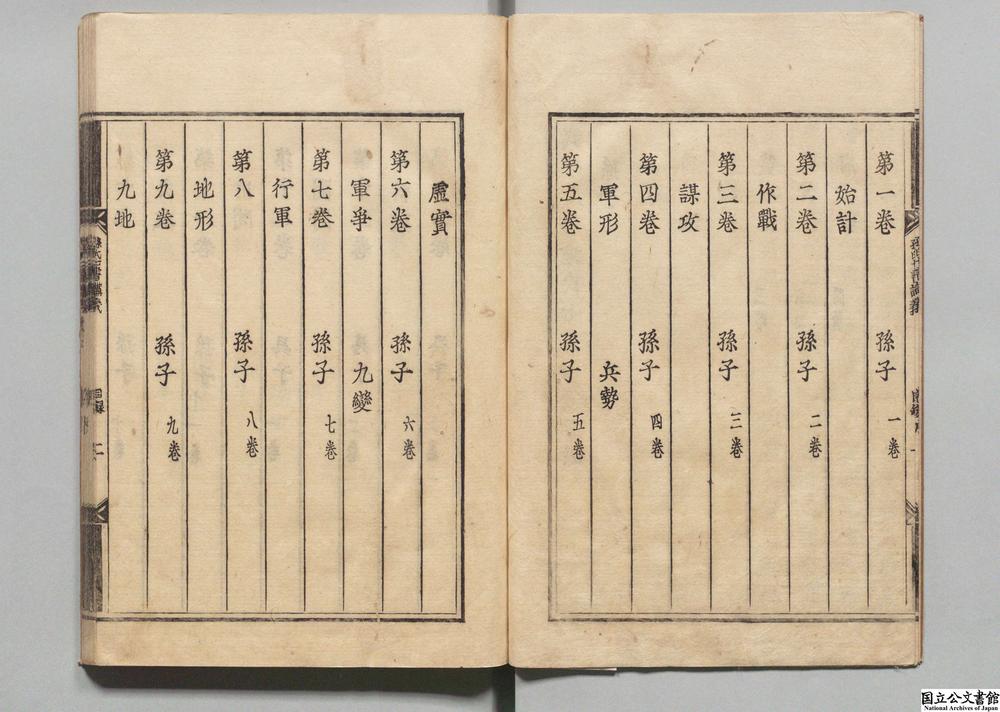 第一卷 孫子 一卷
始計
第二卷 孫子 二卷
作戰
第三卷 孫子 三卷
謀攻
第四卷 孫子 四卷
軍形 兵勢
第五卷 孫子 五卷
虛實
第六卷 孫子 六卷
軍爭 九變
第七卷 孫子 七卷
行軍
第八 孫子 八卷
地形
第九卷 孫子 九卷
九地
目錄 二
国立公文書館
National Archives of Japan